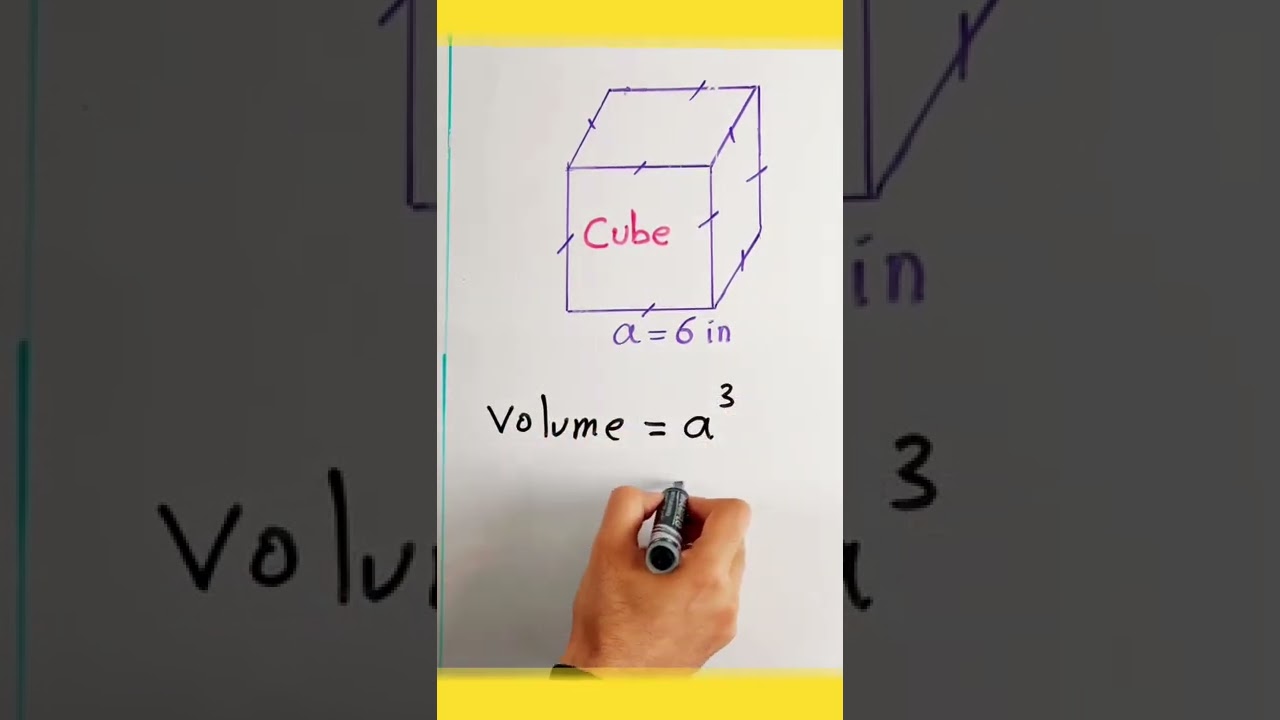 Cube
a = 6 in
Volume = a³